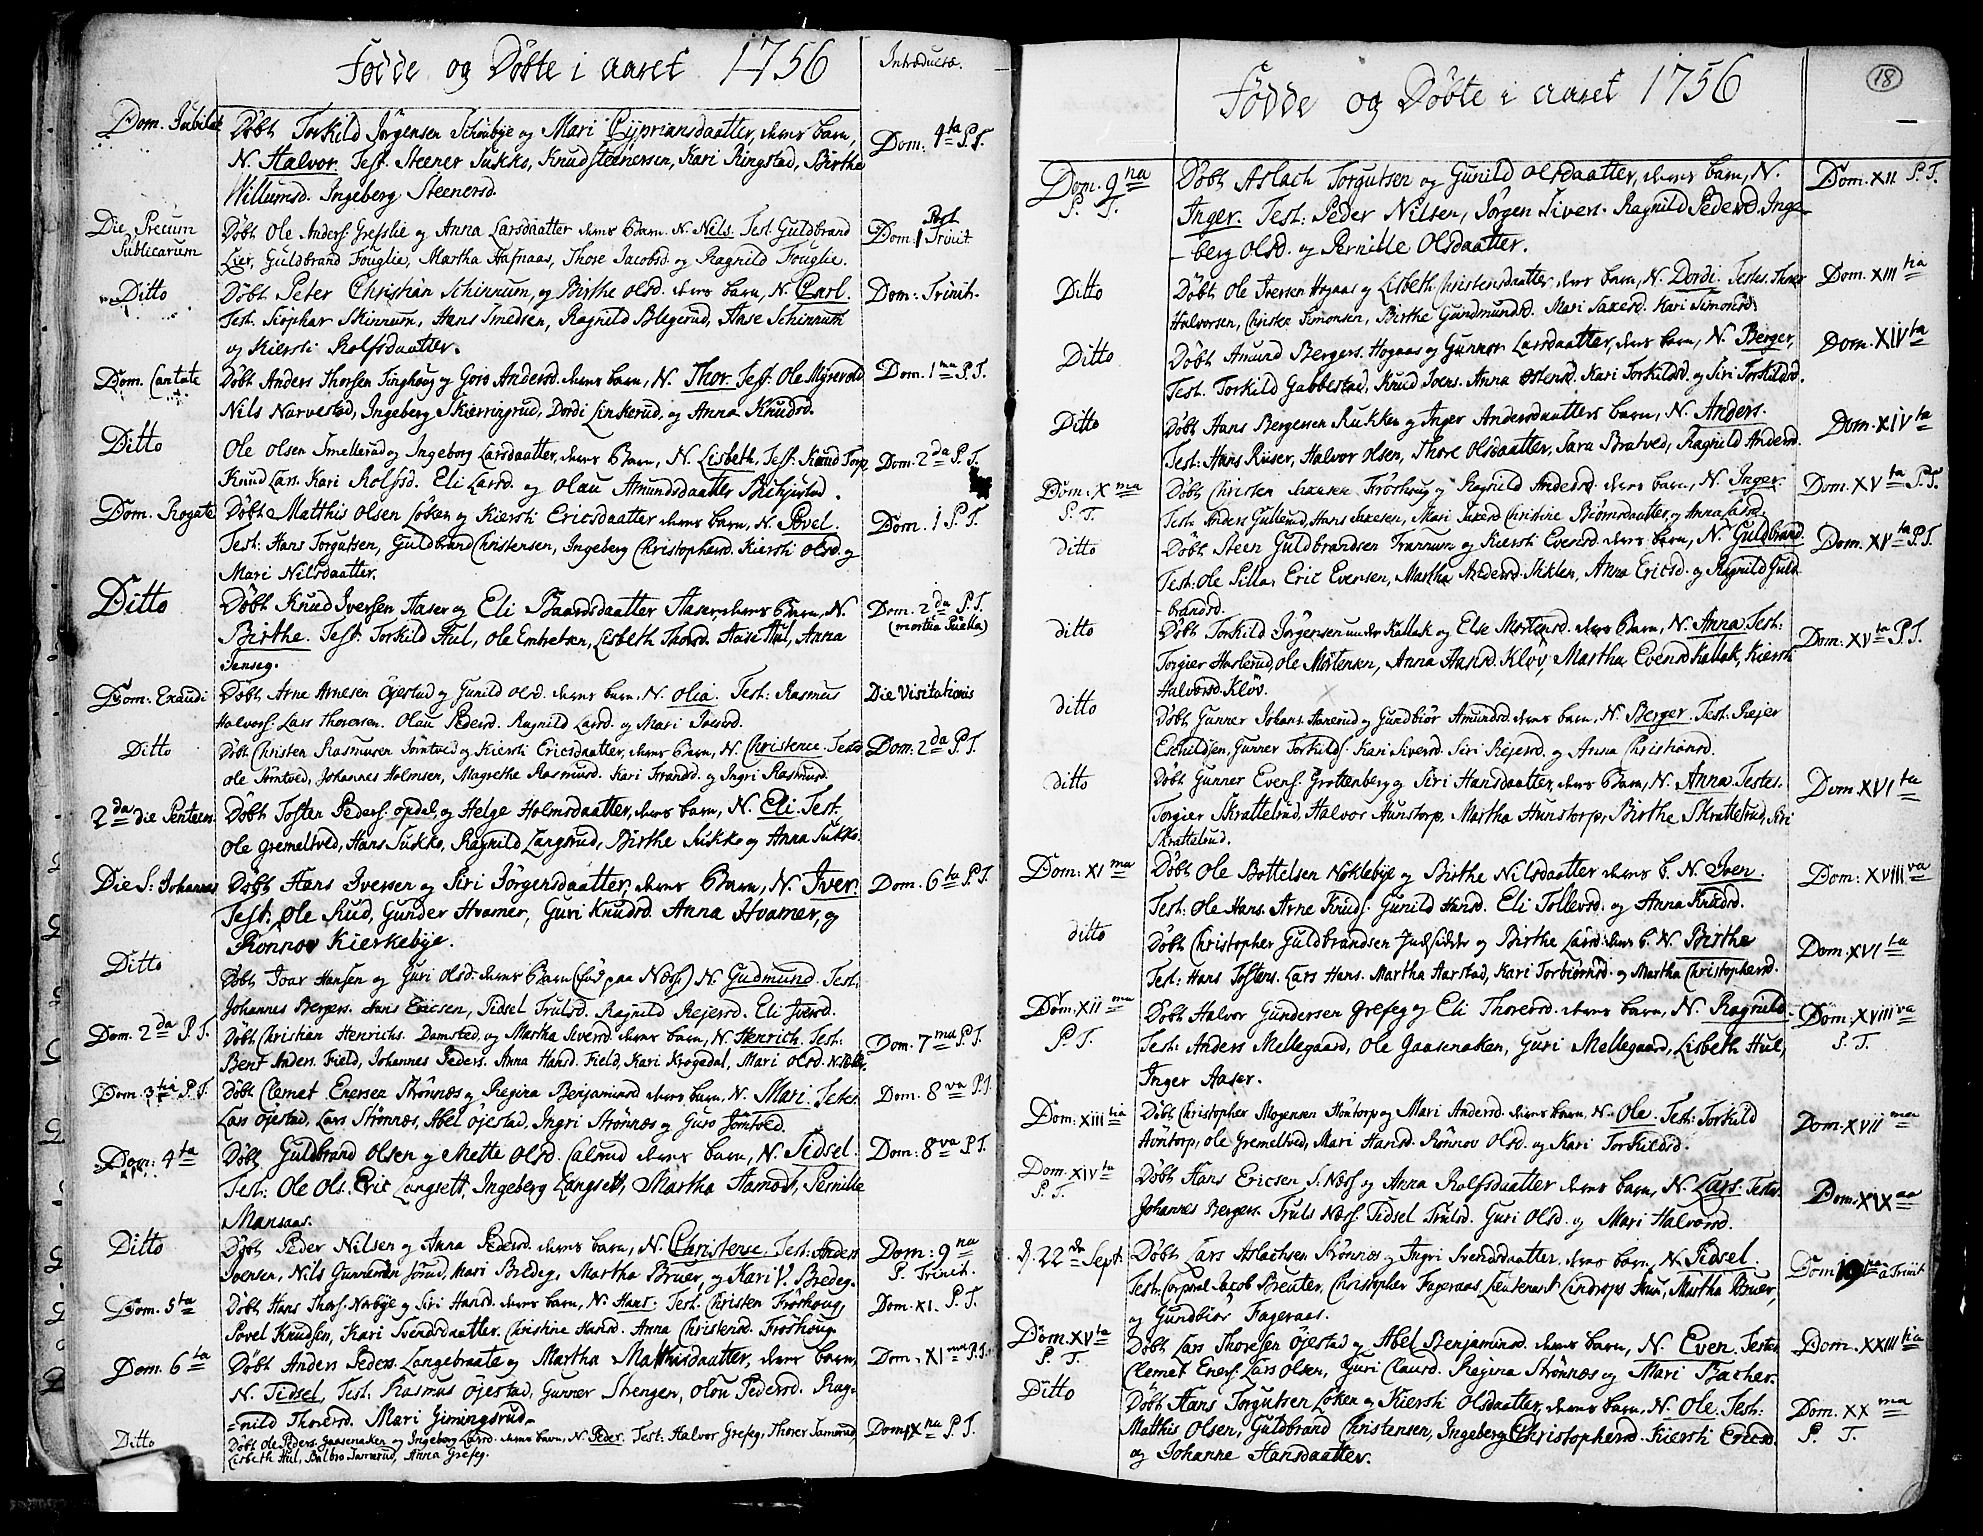 Fødde og Døbte i aaret 1756
Introducta.
Dom. Jubilate
Døbt Torkild Jørgensen Schoubye og Mari Cypriansdaatter, deres barn,
N. Halvor. Test. Steener Sukke, Knud Steenersen, Kari Ringstad, Birthe
Willumsd. Ingeberg Steenersd.
Dom. 4ta P. T.
Die Precum Publicarum
Døbt Ole Anders. Gresslie og Anna Larsdaatter deres Barn N. Nils. Test. Guldbrand
Lier, Guldbrand Fouglie, Martha Hafnaas, Thore Jacobsd. og Ragnild Fouglie.
Dom: 1 Post Trinit.
Ditto
Døbt Peter Christian Schinnum, og Birthe Olsd. deres barn, N. Carl.
Test. Skinnum, Hans Smedsen, Ragnild Blegerud, Aase Schinnum
og Kiersti Rolfsdaatter.
Dom: Trinit.
Dom. Cantate
Døbt Anders Thorsen Tinghoug og Goro Andersd. deres barn, N. Thor. Test. Ole Myrevold
Nils Narvestad, Ingeberg Skierringrud, Dordi Linkerud, og Anna Knudsd.
Dom. 1ma P. T.
Ditto
Ole Olsen Smellerud og Ingeborg Larsdaatter, deres Barn, N. Lisbeth, Test: Knud Torp
Knud Lars. Kari Rolfsd. Eli Larsd. og Olau Amundsdaatter
Dom. 2da P. T.
Dom. Rogate
Døbt Matthis Olsen Løken og Kiersti Ericsdaatter deres barn, N. Povel.
Test: Hans Torgutsen, Guldbrand Christensen, Ingeberg Christophersd. Kiersti Olsd. og
Mari Nilsdaatter.
Dom. 1 P. T.
Ditto
Døbt Knud Iversen Aaser og Eli Baardsdaatter Aaser, deres Barn, N.
Birthe. Test: Torkild Hul, Ole Embretsen, Lisbeth Thorsd. Aase Hul, Anna
Jenseg.
Dom. 2da P. T.
(mortua Puella)
Dom: Exaudi
Døbt Arne Arnesen Øjestad og Gunild Olsd. deres barn, N. Olia. Test: Rasmus
Halvors. Lars Thoresen. Olau Pedersd. Ragnild Larsd. og Mari Iversd.
Die Visitationis
Ditto
Døbt Christen Rasmusen Jømtved og Kiersti Ericsdaatter, deres Barn, N. Christence. Testes
Ole Jømtved, Johannes Holmsen, Magrethe Rasmusd. Kari Frandsd. og Ingri Rasmusd.
Dom. 2da P. T.
2da die Pentecos.
Døbt Tosten Peders. Opdal, og Helge Holmsdaatter, deres barn, N. Eli. Test.
Ole Gremeltved, Hans Sukke, Ragnild Langsrud, Birthe Sukke og Anna Sukke.
Die S: Johannes
Døbt Hans Iversen og Siri Jørgensdaatter, deres Barn, N. Iver.
Test: Ole Rud, Gunder Hvamer, Guri Knudsd. Anna Hvamer, og
Rønnov Kierkebye.
Dom. 6ta P. T.
Ditto
Døbt Ivar Hansen og Guri Olsd. deres Barn (fød paa Næss) N. Gudmund. Test:
Johannes Bergers. Hans Ericsen, Sidsel Trulsd. Ragnild Rejersd. Eli Iversd.
Dom. 2da P. T.
Døbt Christian Henrichs. Damsted, og Martha Siversd. deres barn, N. Henrich. Test:
Bent Anders. Field, Johannes Peders. Anna Hansd. Field, Kari Krogedal, Mari Olsd.
Dom. 7ma P. T.
Dom. 3tia P. T.
Døbt Clemet Enersen Strønnæs og Regina Benjaminsd. deres barn, N. Mari. Testes
Lars Øjestad, Lars Strønnæs, Abel Øjestad, Ingri Strønnæs og Guro Jømtved.
Dom. 8va P. T.
Dom: 4ta
Døbt Guldbrand Olsen og Mette Olsd. Calsrud deres barn, N. Sidsel.
Test: Ole Ols. Eric Langsett, Ingeberg Langsett, Martha Aamodt, Pernille
Mansaas.
Dom: 8va P. T.
Ditto
Døbt Peder Nilsen og Anna Pedersd. deres barn, N. Christense. Test: Anders
Iversen, Nils Gundersen Mari Bredeg, Martha Bruer, og Kari V. Bredeg.
Dom: 9na P. Trinit.
Dom. 5ta
Døbt Hans Thors. Narbye og Siri Hansd. deres barn, N. Hans. Test. Christen Frøshoug,
Povel Knudsen, Kari Svendsdaatter. Christine Hansd. Anna Christensd. Frøshoug.
Dom. XI. P. T.
Dom. 6ta
Døbt Anders Peders. Langebraate og Martha Matthisdaatter, deres barn,
N. Sidsel, Test. Rasmus Øjestad, Gunner Strengen, Olou Pedersd. Rag-
-nild Thoresd. Mari Gimingsrud.
Dom. XIma P. T.
Ditto
Døbt Ole Peders. Gaasenaken og Ingeberg Larsd. deres barn, N. Peder. Test: Halvor Grefeg, Thorer Jamsrud,
Lisbeth Hul, Balbro Jamsrud, Anna Grefeg.
Dom. IXna P. T.
Fødde og Døbte i aaret 1756
18
Dom. 9na P. T.
Døbt Aslach Torgutsen og Gunild Olsdaatter, deres barn, N.
Inger. Test: Peder Nilsen, Jørgen Sivers. Ragnild Pedersd. Inge-
-berg Olsd. og Pernille Olsdaatter.
Dom. XII P. T.
Ditto
Døbt Ole Iversen Hogaas og Lisbeth Christensdaatter, deres barn, N. Dordi. Testes. Thorer
Halvorsen, Christen Simonsen, Birthe Gundmundsd. Mari Saxesd. Kari Simonsd.
Dom. XIIItia
Ditto
Døbt Amund Bergers. Hogaas og Gunnor Larsdaatter, deres barn, N. Berger,
Test. Torkild Gabbestad, Knud Ivers. Anna Østensd. Kari Torkildsd. og Siri Torkildsd.
Dom. XIVta
Ditto
Døbt Hans Bergersen Rukken og Inger Andersdaatters barn, N. Anders.
Test: Hans Riiser, Halvor Olsen, Thore Olsdaatter, Sara Bratved, Ragnild Andersd.
Dom. XIVta
Dom: Xma P. T.
Døbt Christen Saxesen Frøshoug og Ragnild Andersd. deres barn, N. Inger.
Test: Anders Gullerud, Hans Saxesen, Mari Saxesd. Christine Biørnsdaatter, og Anna Larsd.
Dom. XVta P. T.
ditto
Døbt Steen Guldbrandsen Frannum og Kiersti Evensd. deres barn, N. Guldbrand.
Test: Ole Pilla, Eric Evensen, Martha Andersd. Skiklen, Anna Ericsd. og Ragnild Guld-
-brandsd.
Dom. XVta P. T.
ditto
Døbt Torkild Jørgensen under Kallak og Else Mortensd. deres Barn, N. Anna. Test:
Torgier Haslerud, Ole Mortensen, Anna Hansd. Kløv, Martha Evensd. Kallak, Kiersti
Halvorsd. Kløv.
Dom. XVta P. T.
ditto
Døbt Gunner Johans. Hanerud og Gundbiør Amundsd. deres barn, N. Berger. Test: Rejer
Eschildsen, Gunner Torkilds. Kari Siversd. Siri Rejersd. og Anna Christiansd.
ditto
Døbt Gunner Evens. Grottenberg og Siri Hansdaatter, deres Barn, N. Anna. Testes.
Torgier Skrattelrud, Halvor Hunstorp, Martha Hunstorp, Birthe Skrattelrud, Siri
Skrattelrud.
Dom. XVIta
Dom: XIma
Døbt Ole Bottelsen Nøklebye og Birthe Nilsdaatter deres b. N. Iven.
Test: Ole Hans. Arne Knuds. Gunild Hansd. Eli Tollevsd. og Anna Knudsd.
Dom: XVIIIva
ditto
Døbt Christopher Guldbrandsen og Birthe Larsd. deres b. N. Birthe
Test: Hans Tostens. Lars Hans. Martha Aarstad, Kari Torbiørnsd. og Martha Christophersd.
Dom. XVIta
Dom. XIIma P. T.
Døbt Halvor Gundersen Grefeg og Eli Thoresd. deres barn, N. Ragnild.
Test: Anders Mellegaard, Ole Gaasenaken, Guri Mellegaard, Lisbeth Hul,
Inger Aaser.
Dom. XVIIIva P. T.
Dom: XIIItia
Døbt Christopher Mogensen Høntorp og Mari Andersd. deres barn, N. Ole. Test: Torkild
Høntorp, Ole Gremeltved, Mari Hansd. Rønnov Olsd. og Kari Torkildsd.
Dom. XVIIma
Dom XIVta P. T.
Døbt Hans Ericsen S. Næss og Anna Rolfsdaatter deres barn, N. Lars. Testes.
Johannes Bergers. Truls Næss. Sidsel Trulsd. Guri Olsd. og Mari Halvorsd.
Dom. XIXna
d. 22de Sept.
Døbt Lars Aslachsen Strønnæs og Ingri Svendsdaatter, deres barn, N. Sidsel.
Test: Corporal Jacob Breuter, Christopher Fageraas, Lieutenant Lindrops Frue, Martha Bruer,
og Gundbiør Fageraas.
Dom 19na a Trinit
Dom. XVta P. T.
Døbt Lars Thoresen Øjestad og Abel Benjaminsd. deres barn, N. Even. Testes
Clemet Eners. Lars Olsen, Guri Clausd. Regina Strønnæs og Mari Bacher.
Dom. XXIIItia
Ditto
Døbt Hans Torgutsen Løken og Kiersti Olsdaatter, deres barn, N. Ole. Test:
Matthis Olsen, Guldbrand Christensen, Ingeberg Christophersd. Kiersti Ericsd.
og Johanne Hansdaatter.
Dom. XXma P. T.